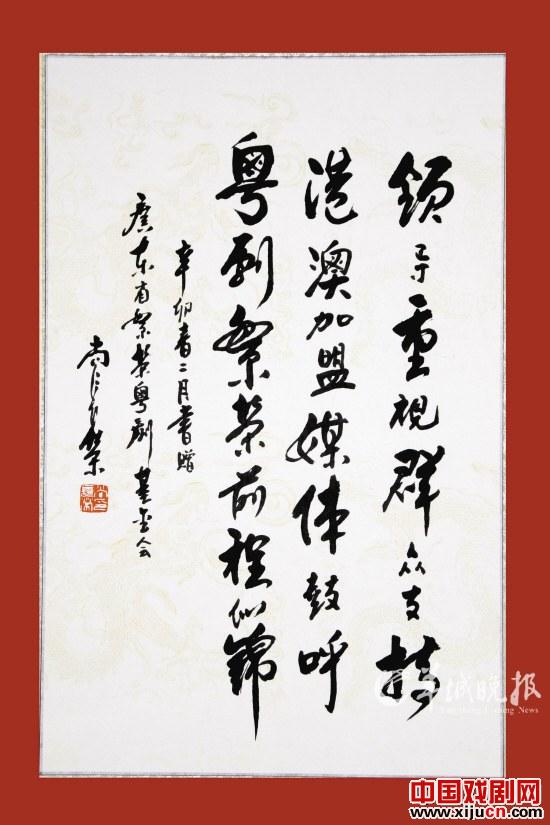 领导重視群众支持
港澳加盟媒体鼓呼
粤剧繁荣前程似锦
辛卯春二月書贈
广东省繁荣粤剧基金会
尚长荣
羊城晚报
Yangcheng Evening News
中国戏剧网
www.xijucn.com